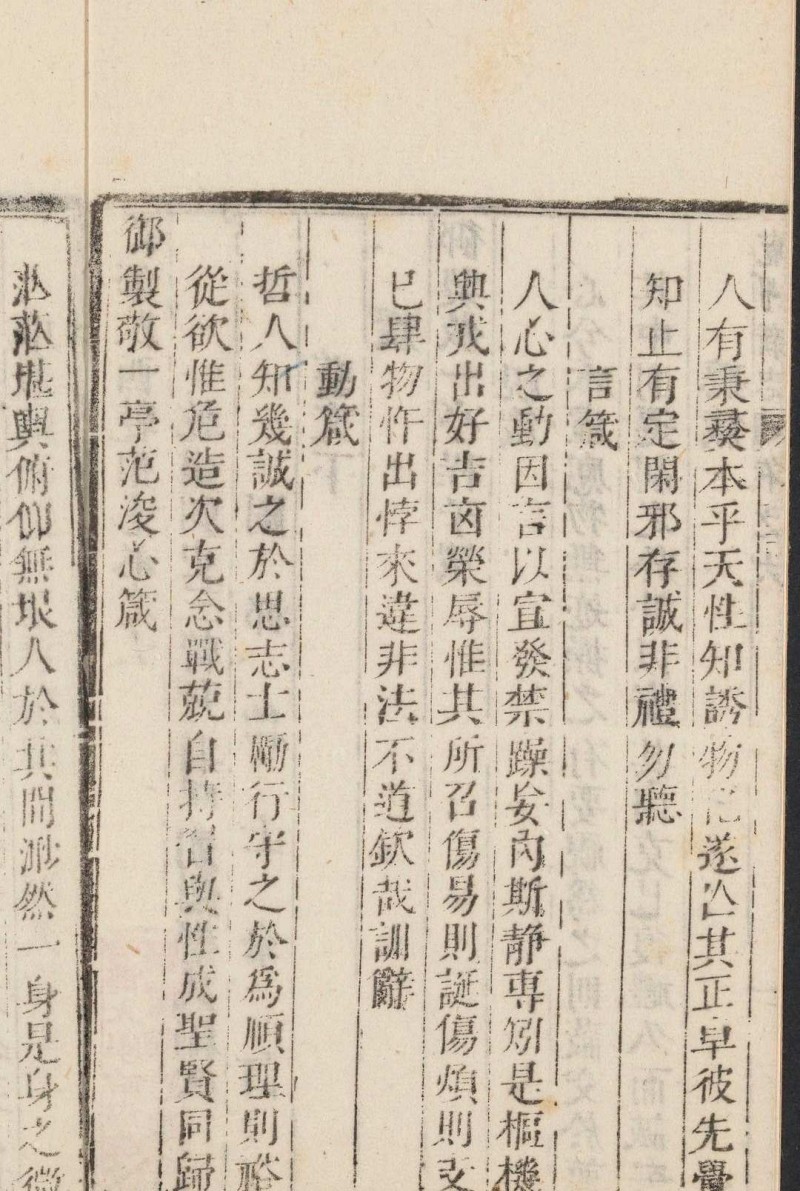 人有秉彝本乎天性知誘物化遂亡其正卓彼先覺
知止有定閑邪存誠非禮勿聽
言箴
人心之動因言以宣發禁躁妄內斯静専矧是樞機
興戎出好吉凶榮辱惟其所召傷易則誕傷煩則支
已肆物忤出悖來違非法不道欽哉訓辭
動箴
哲人知幾誠之於思志士勵行守之於爲順理則裕
從欲惟危造次克念戰兢自持習與性成聖賢同歸
御製敬一亭范浚心箴
茫茫堪輿俯仰無垠人於其間渺然一身是身之微